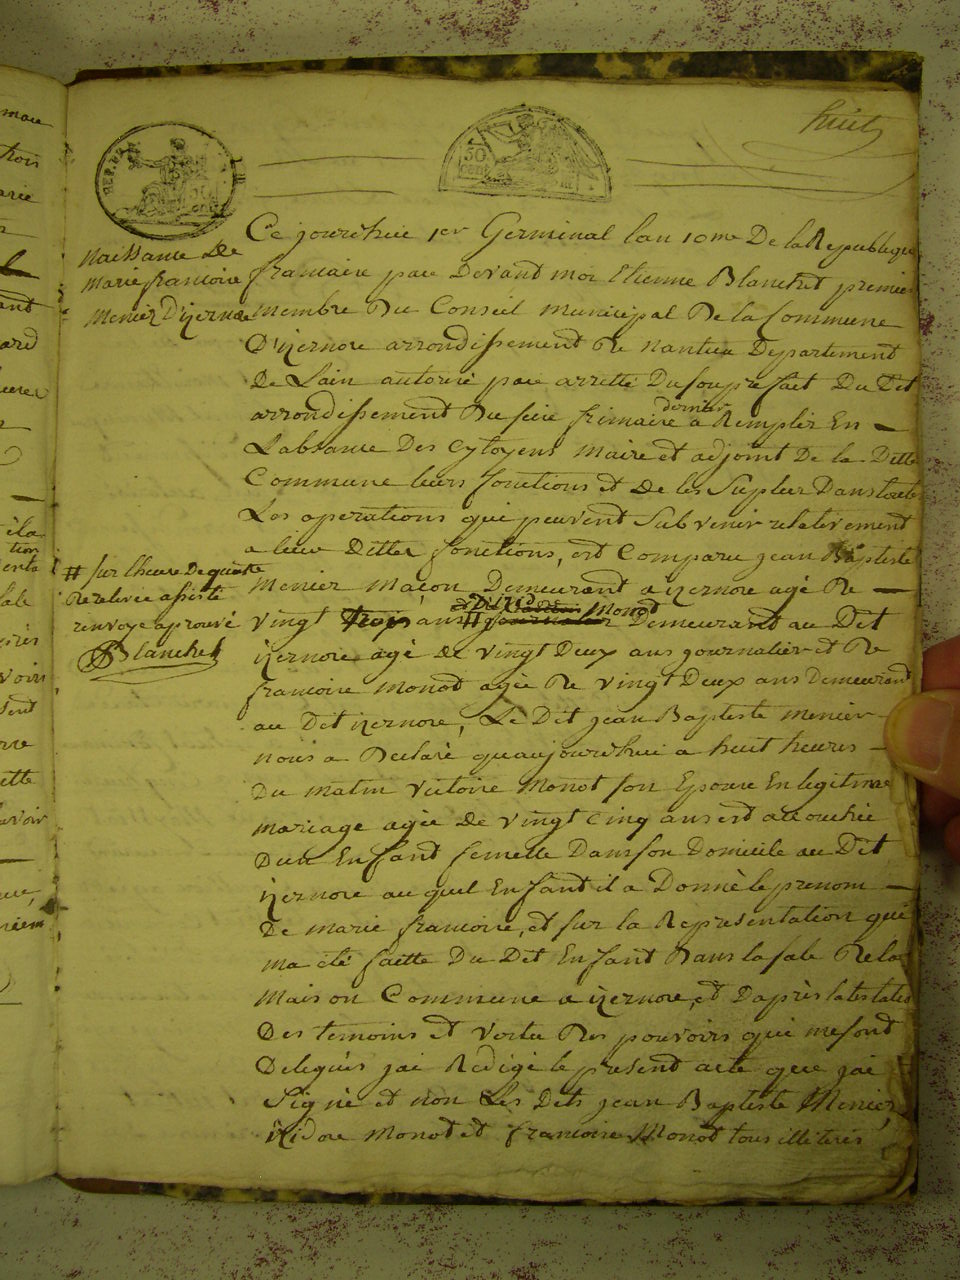 huit
REP. FRA
50
CENT
naissance de
marie francoise
Menier D'izernore
Ce jourdhui 1er Germinal lan 10me De la Republique
francaise par devant moi Etienne Blanchet premier
membre Du Conseil municipal De la Commune
D'izernore arrondissement De nantua Departement
De Lain autorisé par arretté Dusouprefait Du Dit
arrondissement Du seize frimaire dernier a Remplir En
Labsance Des Cytoyens maire et adjoint De la Ditte
Commune leurs fonctions et de les Supleer Dans toutes
Les operations qui peuvent Subvenir relativement
a leur Dittes fonctions, est Comparu jean Baptiste
menier maçon Demeurant a izernore agé De
vingt trois ans # Monod Demeurant au Dit
izernore agé de vingt Deux ans journalier et De
francoise monod agée De vingt Deux ans Demeurant
au Dit izernore, Le Dit jean Baptiste menier
nous a Declaré quaujourdhui a huit heures
Du matin victoire Monot son Epouse En legitime
mariage agée de vingt cinq ans est accouchée
Dun Enfant femelle Dans son Domicile au Dit
izernore au quel Enfant il a Donné le prenom
De marie francoise, et sur la Representation qui
ma eté faitte Du Dit Enfant Dans la sale De la
maison Commune a izernore, et Daprès
Des temoins et vertu Des pouvoirs qui me sont
Delegués jai Redigé le present acte que jai
Signé et non Les Dits jean Baptiste Menier,
izidore Monod et francoise Monod tous illiterés
# sur lheure De quatre
De relevée assisté
renvoye aprouvé
Blanchet